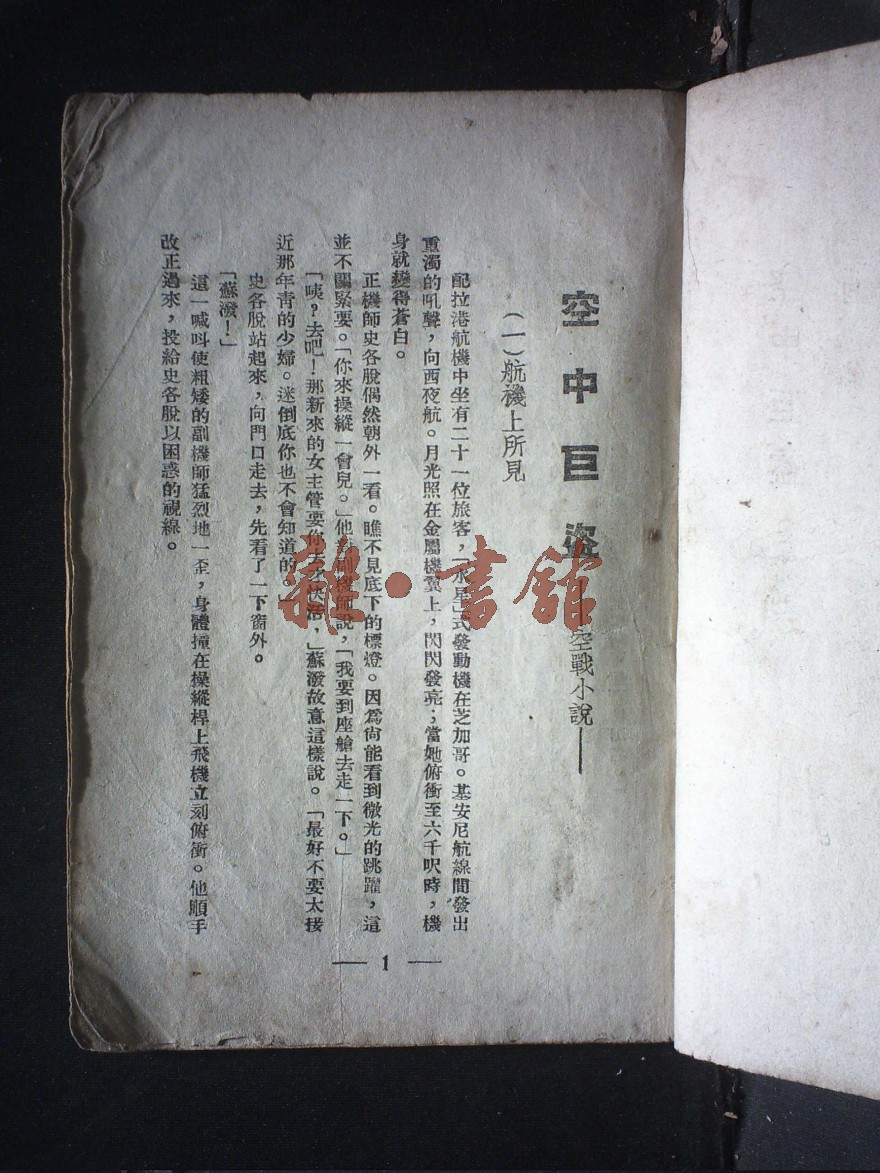 空中巨盜——空戰小說——
(一)航機上所見
配拉港航機中坐有二十一位旅客，「水星」式發動機在芝加哥。基安尼航線間發出
重濁的吼聲，向西夜航。月光照在金屬機翼上，閃閃發亮；當她俯衝至六千呎時，機
身就變得蒼白。
正機師史各脫偶然朝外一看。瞧不見底下的標燈。因爲尙能看到微光的跳躍，這
並不關緊要。「你來操縱一會兒。」他 副機師說，「我要到座艙去走一下。」
「咦？去吧！那新來的女主管要你去才快活，」蘇潑故意這樣說。「最好不要太接
近那年青的少婦。迷倒底你也不會知道的。」
史各脫站起來，向門口走去，先看了一下窗外。
「蘇潑！」
這一喊呌使粗矮的副機師猛烈地一歪，身體撞在操縱桿上飛機立刻俯衝。他順手
改正過來，投給史各脫以困惑的視線。
— 1 —
雜·書館